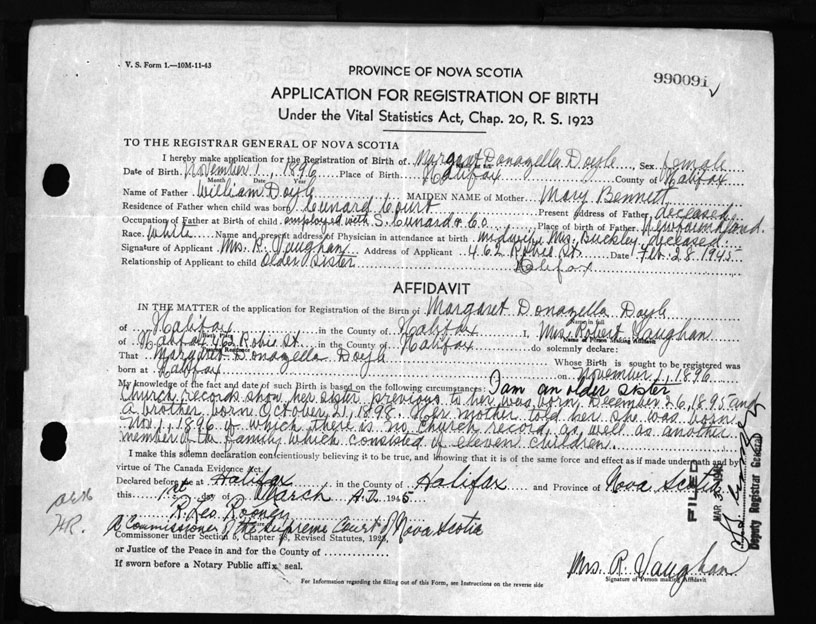 V. S. Form 1.—10M-11-43
PROVINCE OF NOVA SCOTIA
990091
APPLICATION FOR REGISTRATION OF BIRTH
Under the Vital Statistics Act, Chap. 20, R. S. 1923
TO THE REGISTRAR GENERAL OF NOVA SCOTIA
I hereby make application for the Registration of Birth of Margaret Donazella Doyle Sex female
Date of Birth November 1, 1896 Place of Birth Halifax County of Halifax
Month Date Year
Name of Father William Doyle MAIDEN NAME of Mother Mary Bennett
Residence of Father when child was born Cunard Court Present address of Father deceased
Occupation of Father at Birth of child employed with S. Cunard & Co Place of birth of Father Newfoundland
Race White Name and present address of Physician in attendance at birth midwife Mrs. Buckley, deceased
Signature of Applicant Mrs. R. Vaughan Address of Applicant 462 Robie St. Date Feb. 28 1945
Relationship of Applicant to child Older Sister Halifax
AFFIDAVIT
IN THE MATTER of the application for Registration of the Birth of Margaret Donazella Doyle
of Halifax in the County of Halifax I, Mrs. Robert Vaughan
Name of Person Making Affidavit
of Halifax 462 Robie St. in the County of Halifax do solemnly declare:
Residence
That Margaret Donazella Doyle Whose Birth is sought to be registered was
born at Halifax on November 1, 1896
My knowledge of the fact and date of such Birth is based on the following circumstances: I am an older sister
Church records show her sister previous to her was born December 26, 1895 and
a brother born October 21, 1898. Her mother told her she was born
Nov. 1, 1896 of which there is no church record, as well as another
member of the family which consisted of eleven children.
I make this solemn declaration conscientiously believing it to be true, and knowing that it is of the same force and effect as if made under oath and by
virtue of The Canada Evidence Act.
Declared before me at Halifax in the County of Halifax and Province of Nova Scotia
this 1st day of March A.D. 1945
R. Leo Rooney
A Commissioner of the Supreme Court of Nova Scotia
Commissioner under Section 5, Chapter 38, Revised Statutes, 1923,
or Justice of the Peace in and for the County of
If sworn before a Notary Public affix seal.
Mrs. R. Vaughan
Signature of Person making Affidavit
For Information regarding the filling out of this Form, see Instructions on the reverse side
FILED
Deputy Registrar General